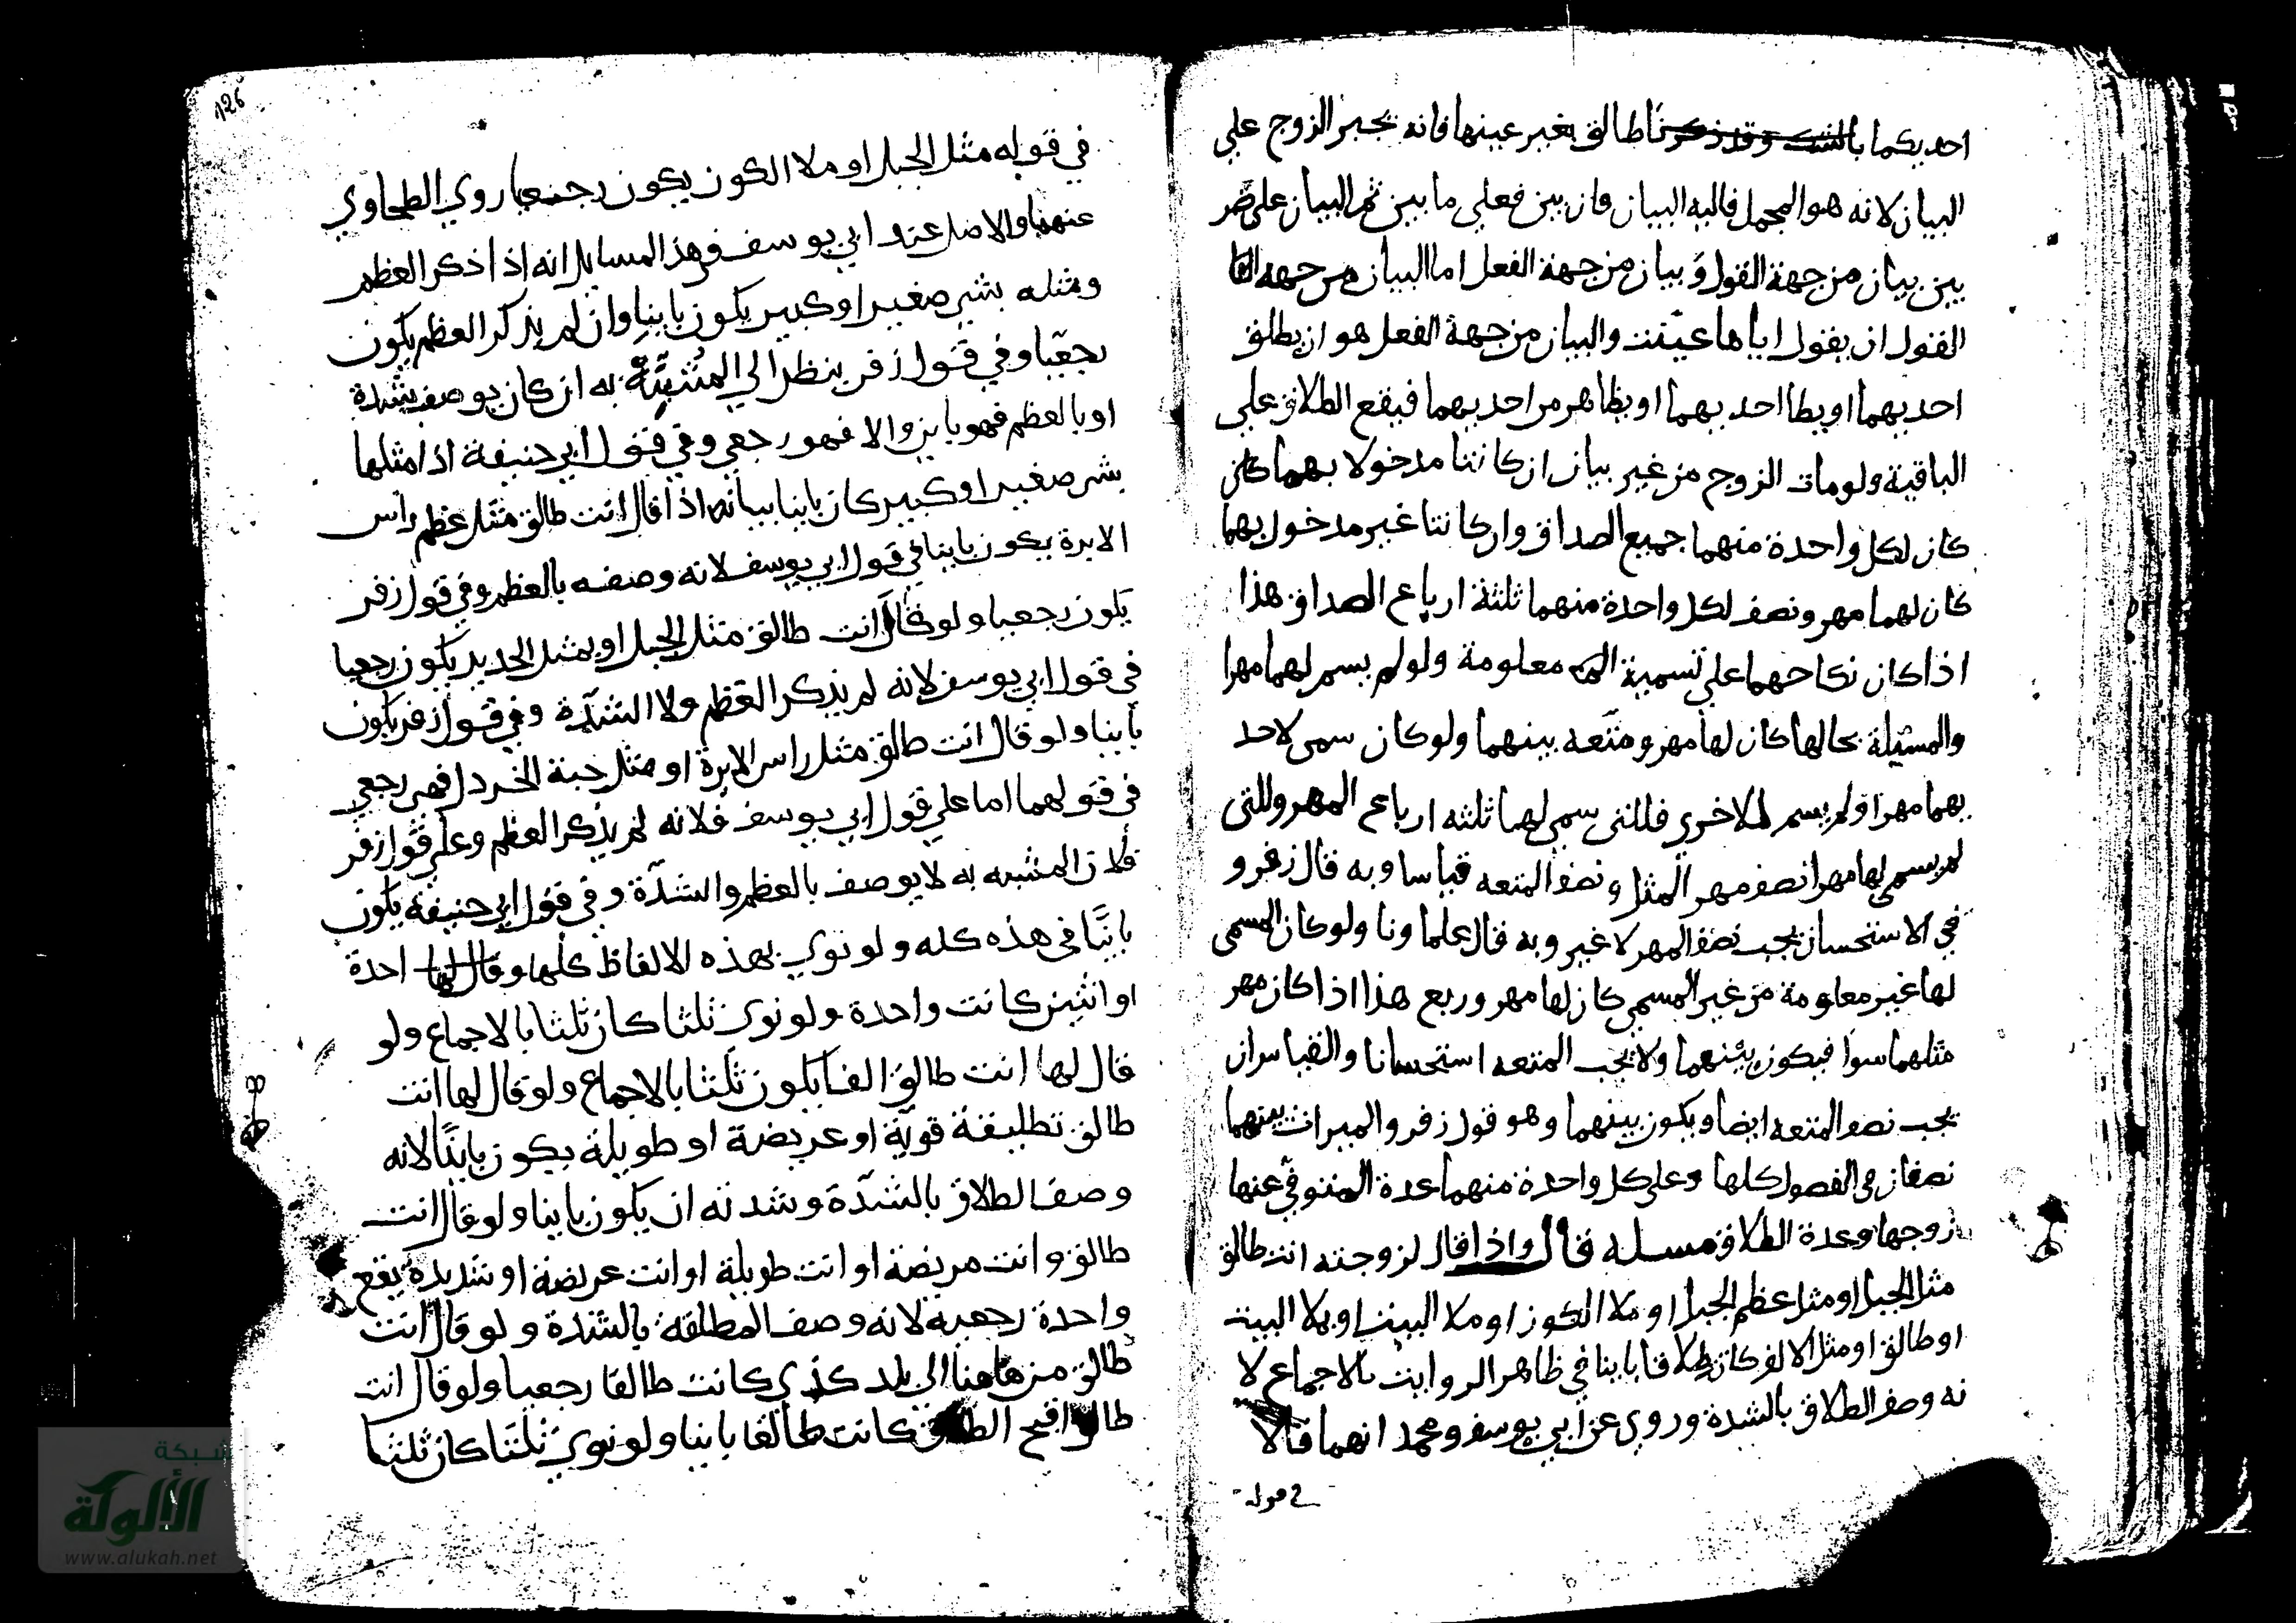 احديكما بالشك وقد ذكرنا طالق بغير عينها فانه يجبر الزوج علي
البيان لانه هو المجمل فاليه البيان فان بين فعلي ما بين ثم البيان علي ضر
بين بيان من جهة القول وبيان من جهة الفعل اما البيان من جهه القا
القول ان يقول اياها عنيت والبيان من جهة الفعل هو ان يطلق
احديهما او يطا احديهما او يظاهر من احديهما فيقع الطلاق علي
الباقية ولو مات الزوج من غير بيان ان كانتا مدخولا بهما كان
كان لكل واحدة منهما جميع الصداق وان كانتا غير مدخول بهما
كان لهما مهر ونصف لكل واحدة منهما ثلثة ارباع الصداق هذا
اذا كان نكاحهما علي تسمية معلومة ولو لم يسم لهما مهرا
والمسئلة بحالها كان لها مهر ومتعه بينهما ولو كان سمى لاحد
يهما مهرا ولم يسم للاخرى فللتى سمى لها ثلثه ارباع المهر وللتى
لم يسمى لها مهرا نصف مهر المثل ونصف المتعه قياسا وبه قال زفر و
في الاستحسان يجب نصف المهر لا غير وبه قال علماونا ولو كان المسمى
لها غير معلومة من غير المسمى كان لها مهر وربع هذا اذا كان مهر
مثلهما سوا فيكون بينهما ولا يجب المتعه استحسانا والقياس ان
يجب نصف المتعه ايضا ويكون بينهما وهو قول زفر والميراث بينهما
نصفان فى الفصول كلها وعلى كل واحدة منهما عدة المتوفي عنها
زوجها وعدة الطلاق مسله قال واذا قال لزوجته انت طالق
مثل الجبل او مثل عظم الجبل او ملا الكون او ملا البيت او بملا البيت
او طالق او مثل الالف كان طلاقا باينا في ظاهر الروايت بالاجماع لا
نه وصف الطلاق بالشدة وروي عن ابي يوسف ومحمد انهما قالا
في قوله
126
في قوله مثل الجبل او ملا الكون يكون رجعيا روي الطحاوي
عنهما والاصل عند ابي يوسف في هذا المسايل انه اذا ذكر العظم
ومثله بشي صغير او كبير يكون باينا وان لم يذكر العظم يكون
رجعيا وفي قول زفر ينظر الي المشبة به ان كان يوصف بشدة
او بالعظم فهو باين والا فهو رجعي وفي قول ابي حنيفة اذا مثلها
بشي صغير او كبير كان باينا بيانه اذا قال انت طالق مثل عظم راس
الابرة يكون باينا في قول ابي يوسف لانه وصفه بالعظم وفي قول زفر
يكون رجعيا ولو قال انت طالق مثل الجبل او بمثل الحديد يكون رجعيا
في قول ابي يوسف لانه لم يذكر العظم ولا الشدة وفي قول زفر يكون
باينا ولو قال انت طالق مثل راس الابرة او مثل حبة الخردل فهى رجعي
في قولهما اما علي قول ابي يوسف فلانه لم يذكر العظم وعلي قول زفر
فلان المشبه به لا يوصف بالعظم والشدة وفي قول ابي حنيفة يكون
باينا في هذه كله ولو نوي بهذه الالفاظ كلها وقال لها احدة
او اثنين كانت واحدة ولو نوى ثلثا كان ثلثا بالاجماع ولو
قال لها انت طالق الفا يكون ثلثا بالاجماع ولو قال لها انت
طالق تطليقة قوية او عريضة او طويلة يكون باينا لانه
وصف الطلاق بالشدة وشدته ان يكون باينا ولو قال انت
طالق وانت مريضة او انت طويلة او انت عريضة او شديدة يقع
واحدة رجعيه لانه وصف المطلقة بالشدة ولو قال انت
طالق من هاهنا الي بلد كذي كانت طالقا رجعيا ولو قال انت
طالق اقبح الطلاق كانت طالقا باينا ولو نوي ثلثا كان ثلثا
شبكة
الألوكة
www.alukah.net